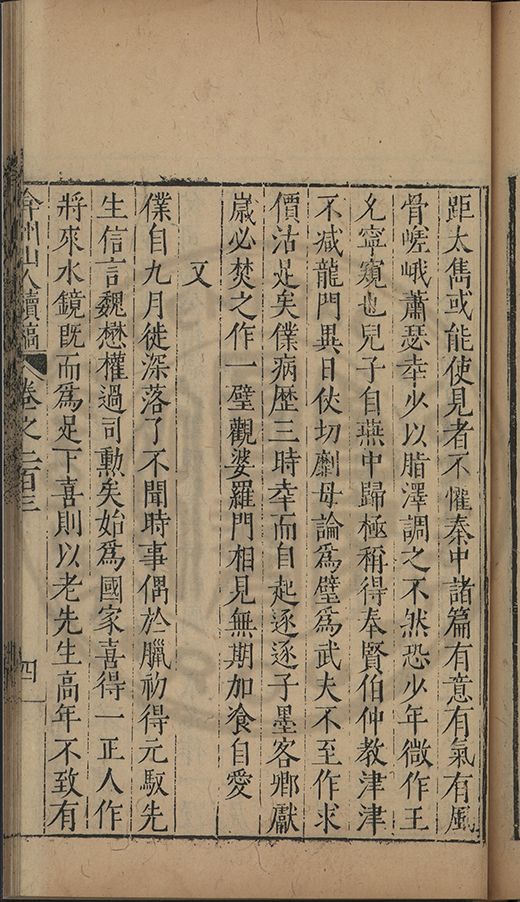 距太雋或能使見者不懼秦中諸篇有意有氣有風
骨嵯峨蕭瑟幸少以脂澤調之不然恐少年微作王
允寧窺也兒子自燕中歸極稱得奉賢伯仲教津津
不减龍門異日伏切劘毋論為璧為武夫不至作求
價沽是矣僕病歷三時幸而自起逐逐子墨客卿獻
歲必焚之作一壁觀婆羅門相見無期加飡自愛
又
僕自九月徙深落了不聞時事偶於臘初得元馭先
生信言魏懋權過司勳矣始為國家喜得一正人作
將來水鏡既而為足下喜則以老先生高年不致有
弇州山人續稿 卷之二百三 四